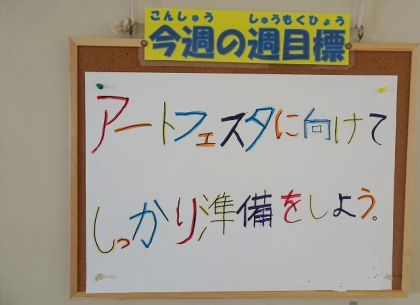 こんしゅう しゅうもくひょう
今週の週目標
アートフェスタに向けて
しっかり準備をしよう。